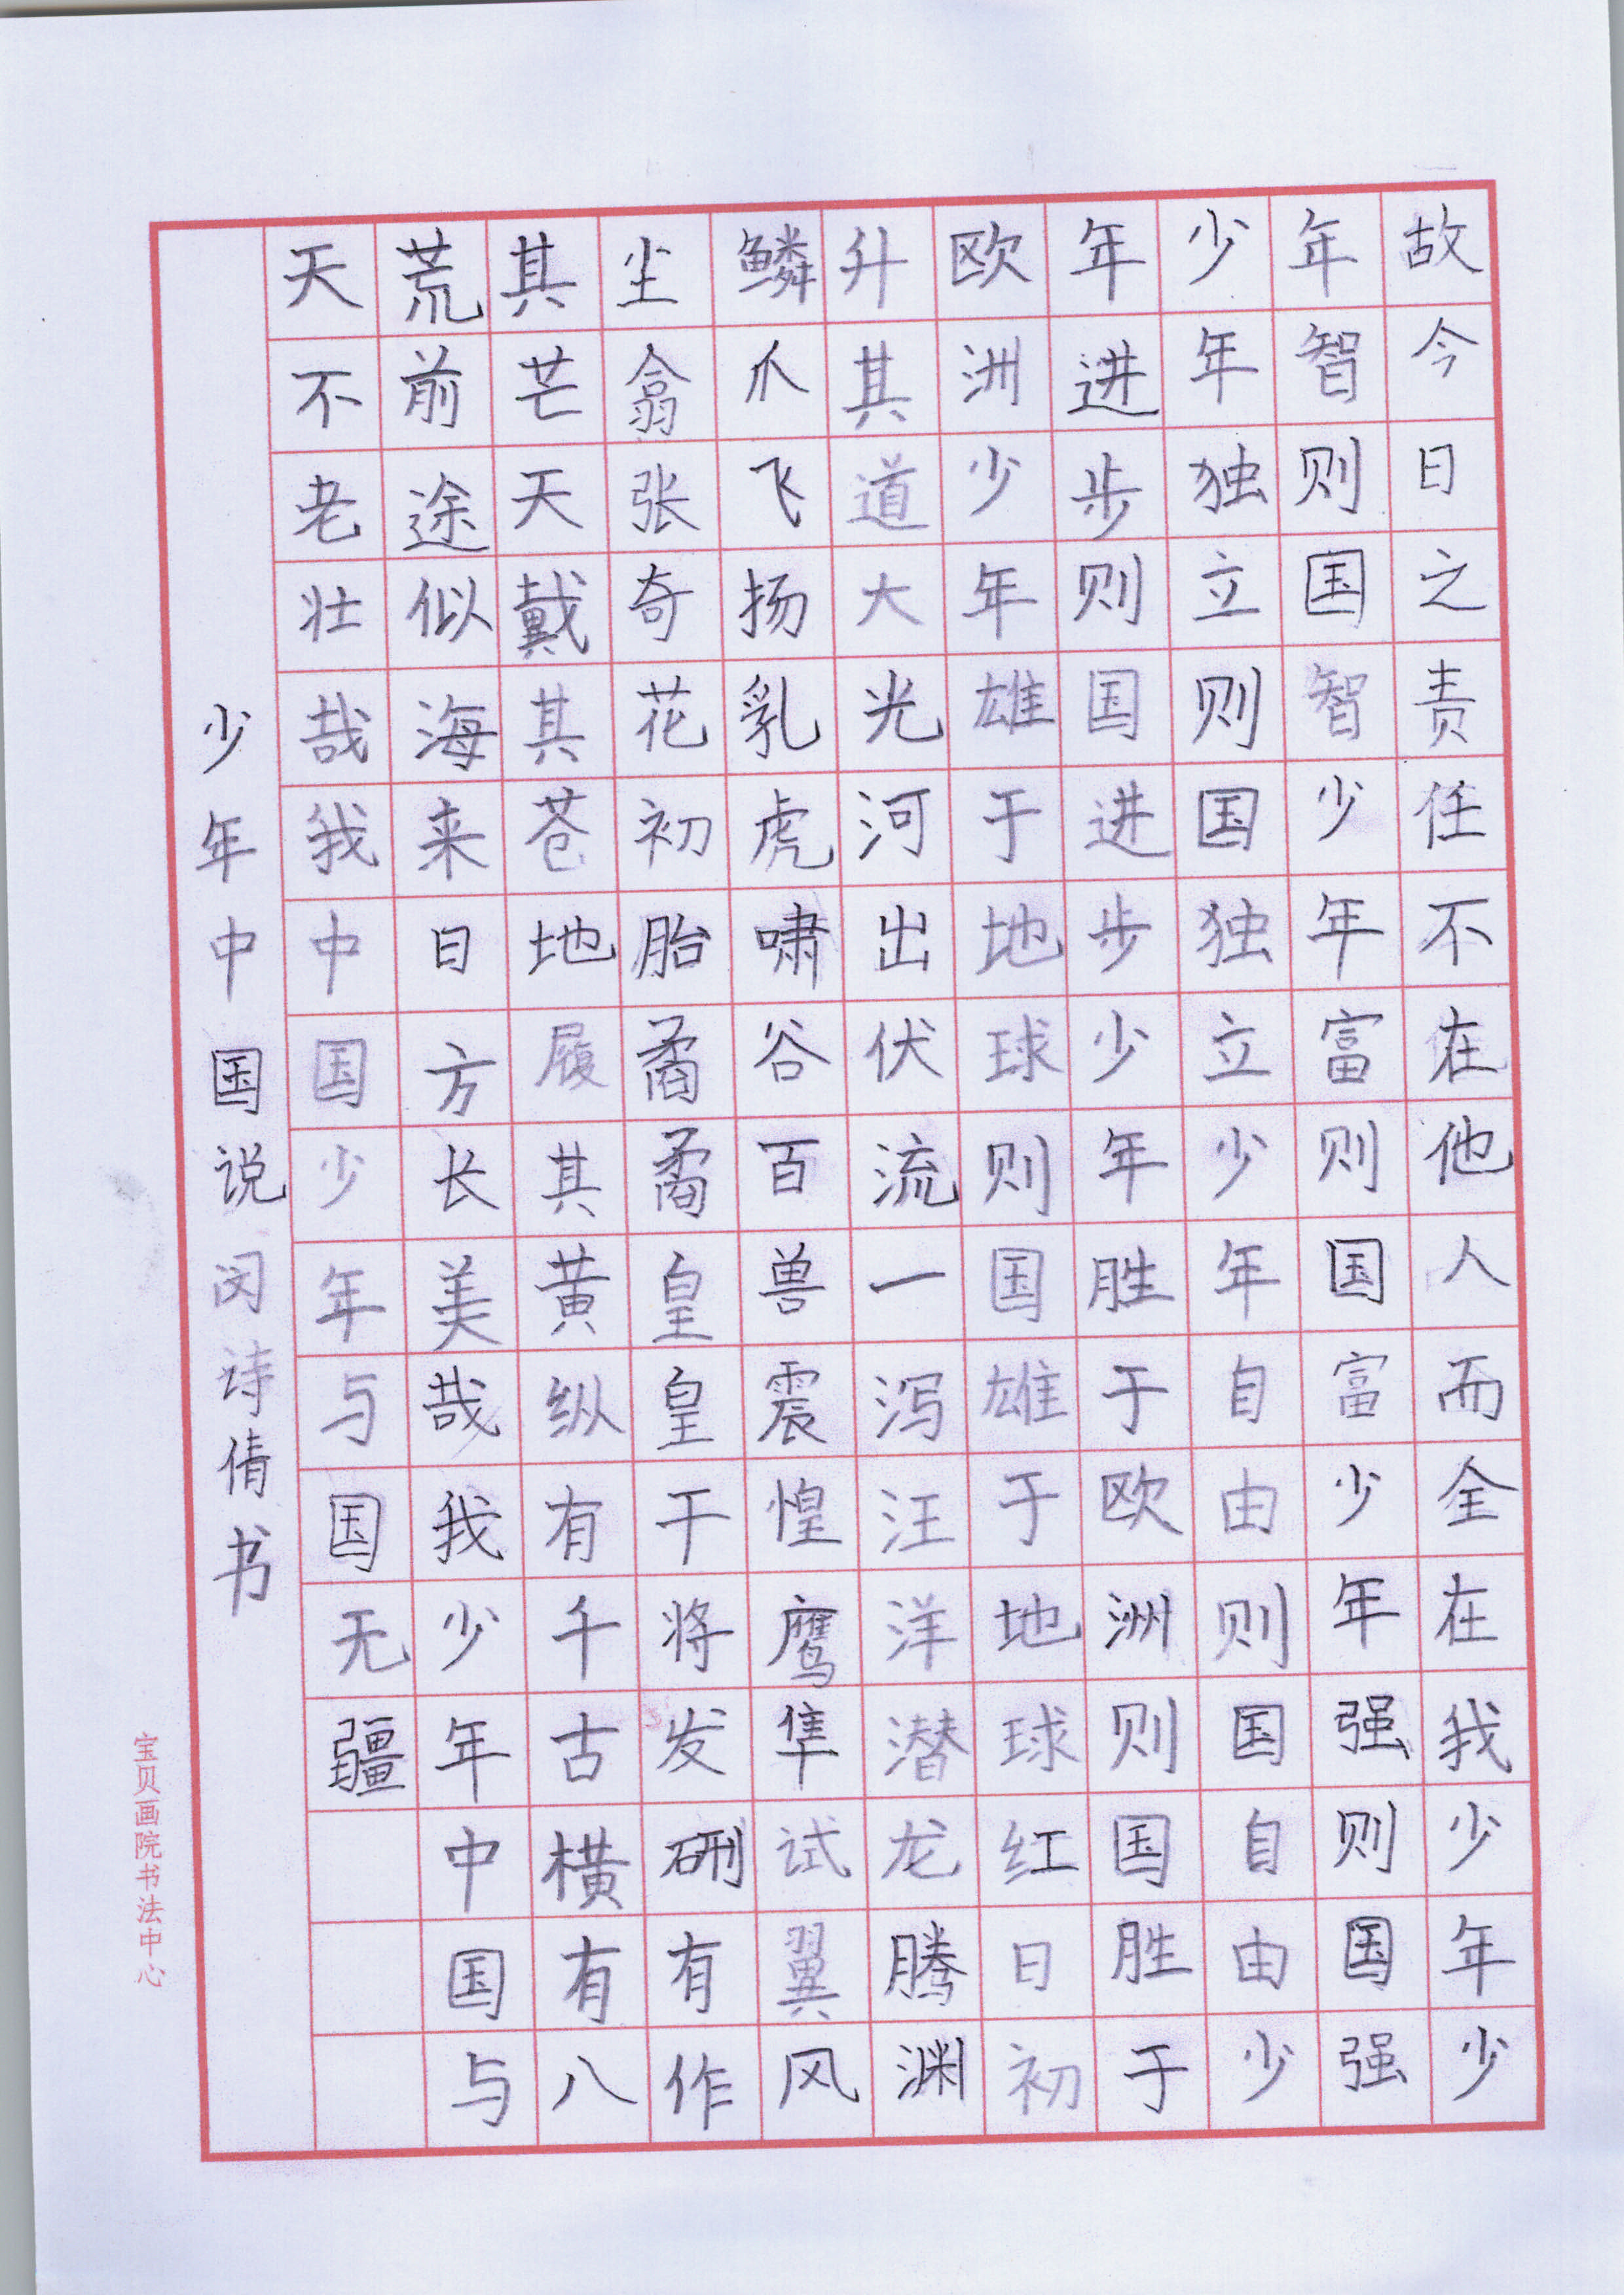 故今日之责任不在他人而全在我少年少
年智则国智少年富则国富少年强则国强
少年独立则国独立少年自由则国自由少
年进步则国进步少年胜于欧洲则国胜于
欧洲少年雄于地球则国雄于地球红日初
升其道大光河出伏流一泻汪洋潜龙腾渊
鳞爪飞扬乳虎啸谷百兽震惶鹰隼试翼风
尘翕张奇花初胎矞矞皇皇干将发硎有作
其芒天戴其苍地履其黄纵有千古横有八
荒前途似海来日方长美哉我少年中国与
天不老壮哉我中国少年与国无疆
少年中国说 闵诗倩书
宝贝画院书法中心